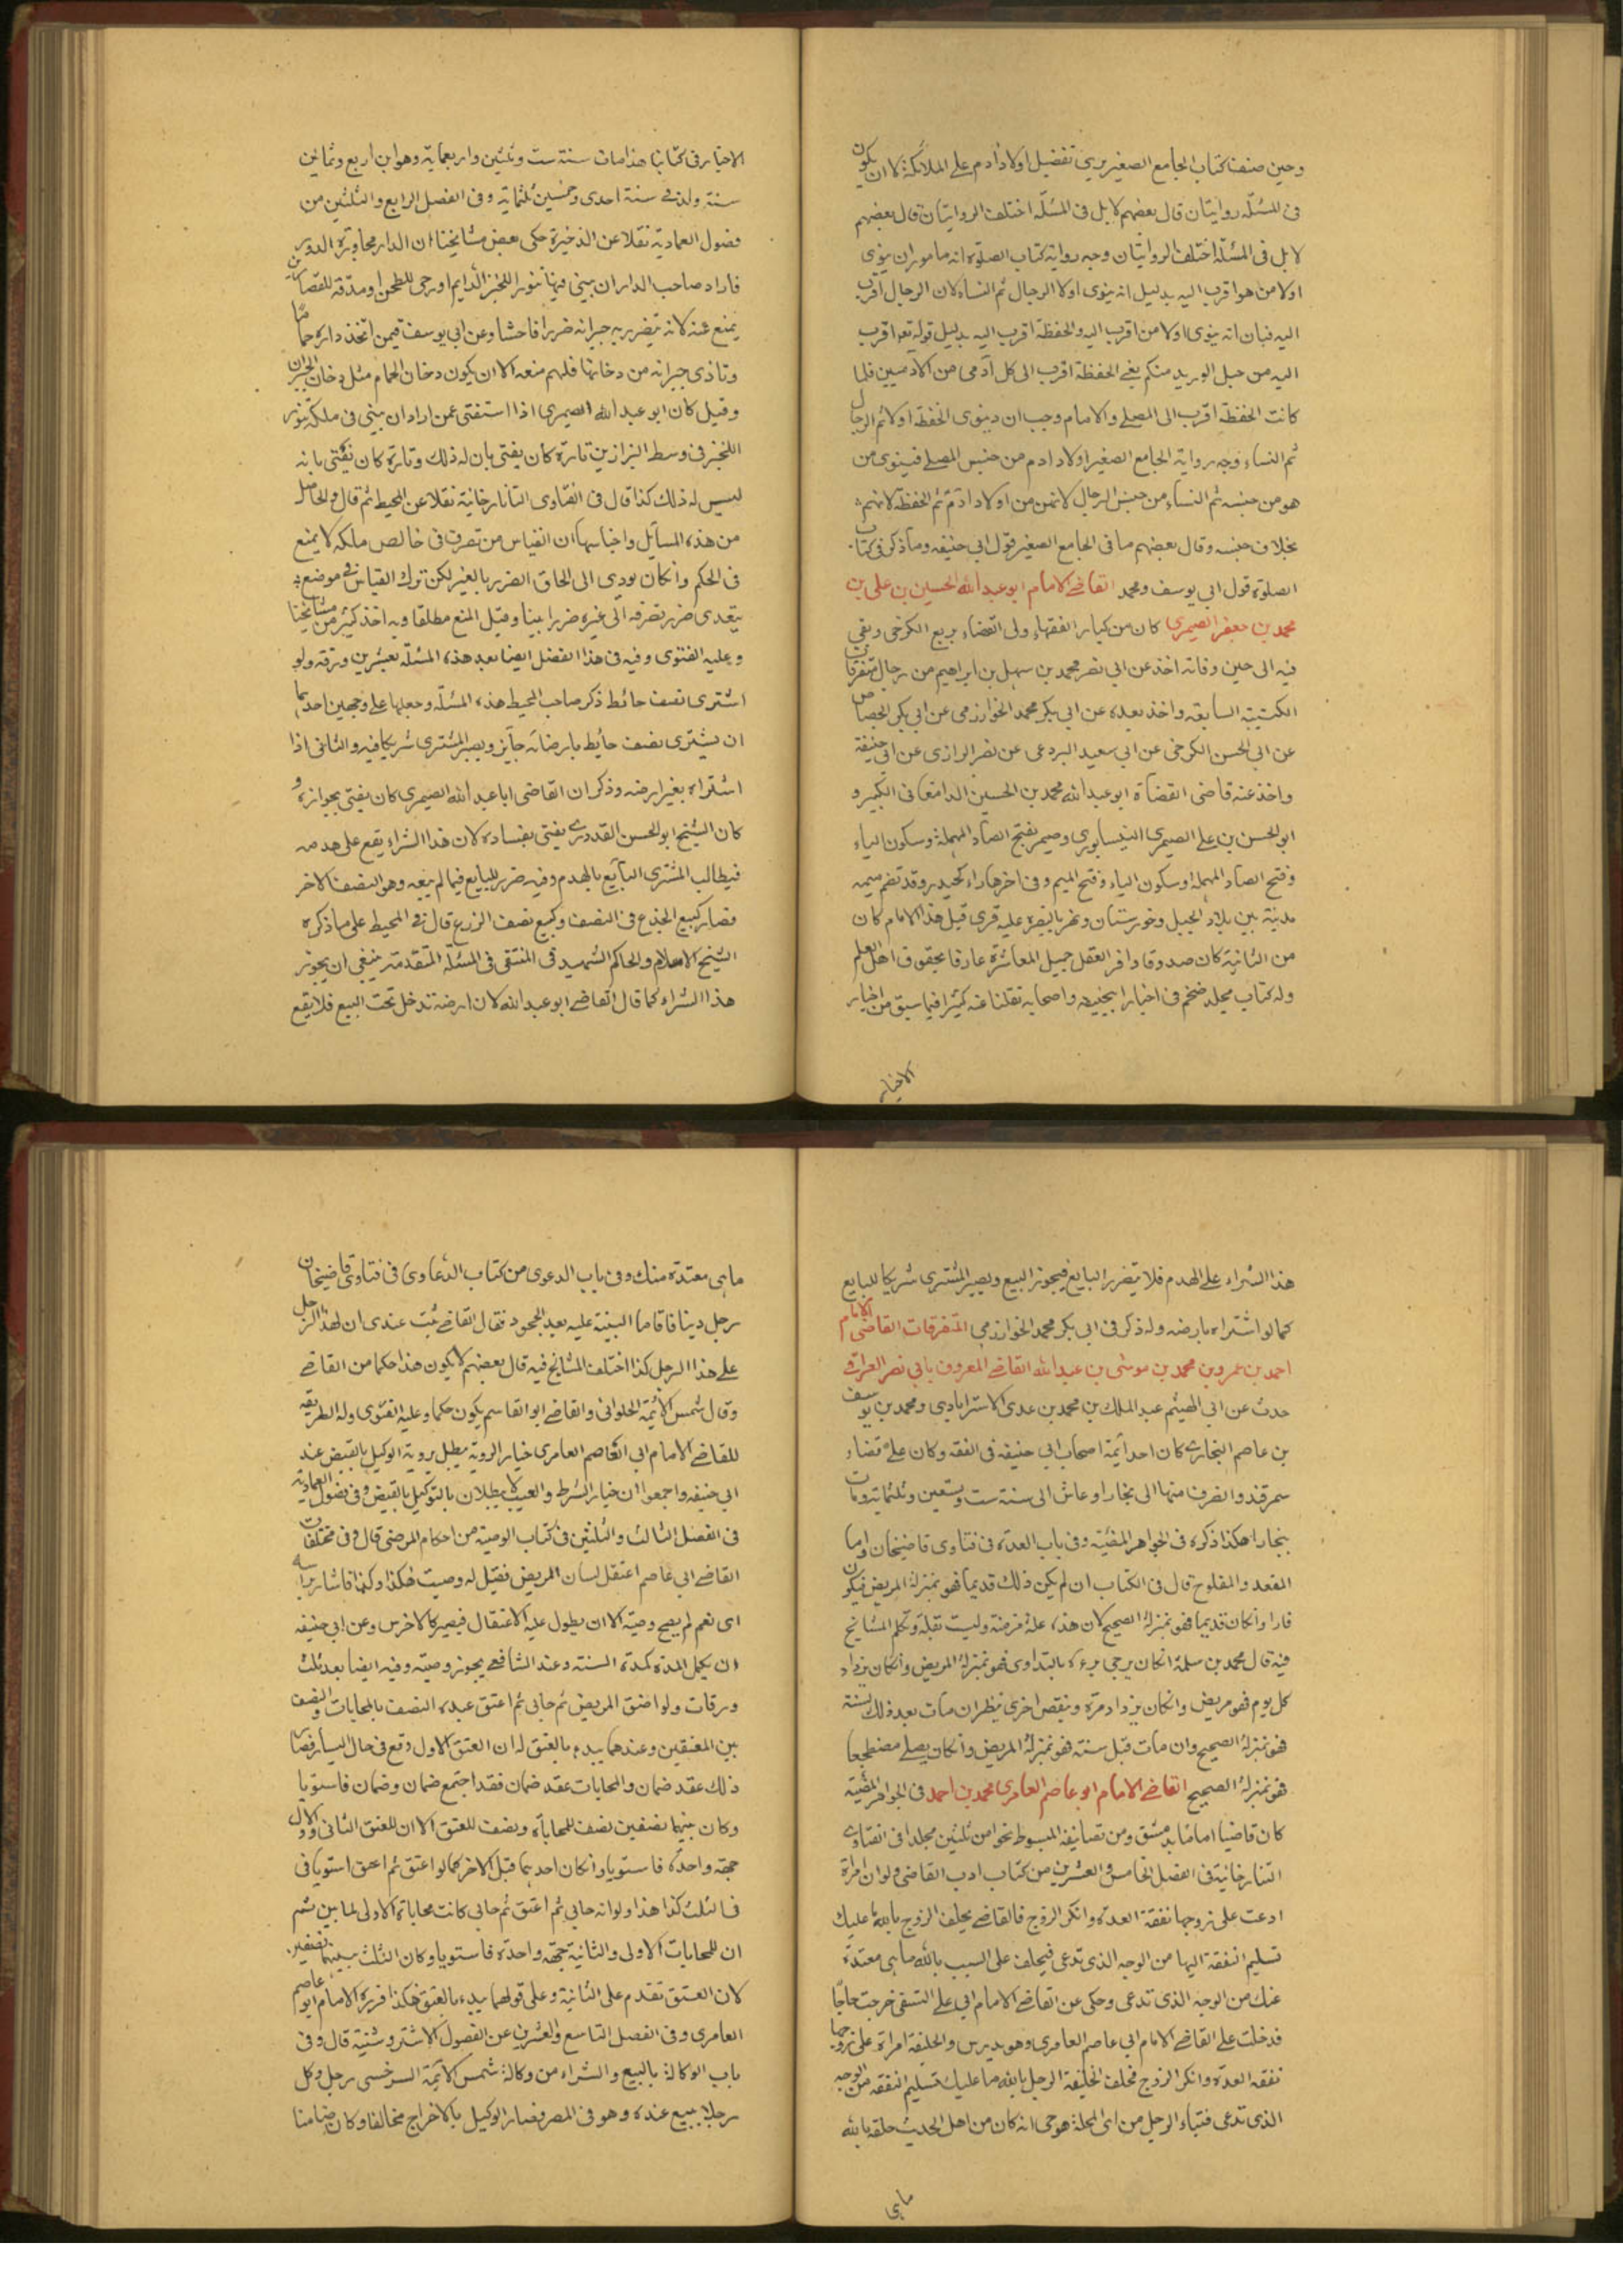 وحين صنف كتاب الجامع الصغير يرى تفضيل اولاد ادم على الملائكة الا ان يكون
فى المسئلة روايتان قال بعضهم لا بل فى المسئلة اختلف الروايتان قال بعضهم
لا بل فى المسئلة اختلف الروايتان وجه رواية كتاب الصلوة انه مامور ان ينوى
اولا من هو اقرب اليه بدليل انه ينوى اولا الرجال ثم النساء لان الرجال اقرب
اليه فبان انه ينوى اولا من اقرب اليه والحفظة اقرب اليه بدليل قوله تع اقرب
اليه من حبل الوريد منكم يعنى الحفظة اقرب الى كل آدمى من الادميين فلما
كانت الحفظة اقرب الى المصلى والامام وجب ان ينوى الحفظة اولا ثم الرجال
ثم النساء وجه رواية الجامع الصغير اولاد ادم من جنس المصلى فينوى من
هو من جنسه ثم النساء من جنس الرجال لانهن من اولاد ادم ثم الحفظة لانهم
بخلاف جنسه وقال بعضهم ما فى الجامع الصغير قول ابى حنيفه وما ذكر فى كتاب
الصلوة قول ابى يوسف ومحمد القاضى الامام ابو عبد الله الحسين بن على بن
محمد بن جعفر الصيمرى كان من كبار الفقهاء ولى القضاء بربع الكرخى وبقى
فيه الى حين وفاته اخذ عن ابى نصر محمد بن سهل بن ابراهيم من رجال متفرقات
الكتيبة السابقه واخذ بعده عن ابى بكر محمد الخوارزمى عن ابى بكر الجصاص
عن ابى الحسن الكرخى عن ابى سعيد البردعى عن نصر الرازى عن ابى حنيفة
واخذ عنه قاضى القضاة ابو عبد الله محمد بن الحسين الدامغانى الكبير و
ابو الحسن بن على الصيمرى النيسابورى وصيمر بفتح الصاد المهملة وسكون الياء
وفتح الصاد المهملة وسكون الياء وفتح الميم وفى اخرها راء كحيدر وقد تضم ميمه
مدينة بين بلاد الجبل وخورستان ونهر بالبصرة عليه قرى قيل هذا الامام كان
من الثانية كان صدوقا وافر العقل جميل المعاشرة عارفا بحقوق اهل العلم
وله كتاب مجلد ضخم فى اخبار ابيحنيفه واصحابه نقلنا عنه كثيرا فيما سبق من اخبار
الاخيار
الاخيار فى كتابنا هذا مات سنة ست وثلثين واربعماية وهو ابن اربع وثمانين
سنة ولد فى سنة احدى وخمسين ثلثماية وفى الفصل الرابع والثلثين من
فصول العمادية نقلا عن الذخيرة حكى بعض مشايخنا ان الدار مجاورة الدور
فاراد صاحب الدار ان يبنى فيها تنورا للخبز الدايم او رحى للطحن او مدقة للقصارين
يمنع عنه لانه يتضرر به جيرانه ضررا فاحشا وعن ابى يوسف فيمن اتخذ داره حماما
وتاذى جيرانه من دخانها فلهم منعه الا ان يكون دخان الحمام مثل دخان الجيران
وقيل كان ابو عبد الله الصيمرى اذا استفتى عمن اراد ان يبنى فى ملكه تنور
اللخبز فى وسط البزازين تارة كان يفتى بان له ذلك وتارة كان يفتى بانه
ليس له ذلك كذا قال فى الفتاوى التاتارخانية نقلا عن المحيط ثم قال والحاصل
من هذه المسايل واجناسها ان القياس من تصرف فى خالص ملكه لا يمنع
فى الحكم وان كان يودى الى الحاق الضرر بالغير لكن ترك القياس فى موضع
يتعدى ضرر تصرفه الى غيره ضررا بينا وقيل المنع مطلقا وبه اخذ كثير من مشايخنا
وعليه الفتوى وفيه فى هذا الفصل ايضا بعد هذه المسئلة بعشرين ورقة ولو
اشترى نصف حائط ذكر صاحب المحيط هذه المسئلة وجعلها على وجهين احديها
ان يشترى نصف حايط بارضه انه جايز ويصير المشترى شريكا فيه والثانى اذا
اشتراه بغير ارضه وذكر ان القاضى ابا عبد الله الصيمرى كان يفتى بجوازه و
كان الشيخ ابو الحسن القدورى يفتى بفساده لان هذا الشراء يقع على هدمه
فيطالب المشترى البايع بالهدم وفيه ضرر للبايع فيما لم يبعه وهو النصف الاخر
فصار كبيع الجذع فى السقف وكبيع نصف الزرع قال فى المحيط على ما ذكره
الشيخ الاسلام والحاكم الشهيد فى المنتقى فى المسئلة المتقدمة ينبغى ان يجوز
هذا الشراء كما قال القاضى ابو عبد الله لان ارضه تدخل تحت البيع فلا يقع
هذا الشراء على الهدم فلا يتضرر البايع فيجوز البيع ويصير المشترى شريكا للبايع
كما لو اشتراه بارضه وله ذكر فى ابى بكر محمد الخوارزمى المتفرقات القاضى الامام
احمد بن عمرو بن محمد بن موسى بن عبد الله القاضى المعروف بابى نصر العراقى
حدث عن ابى الهيثم عبد الملك بن محمد بن عدى الاسترابادى ومحمد بن يوسف
بن عاصم البخارى كان احد ائمة اصحاب ابى حنيفه فى الفقه وكان على قضاء
سمرقند وانصرف منها الى بخارا وعاش الى سنة ست وتسعين وثلثماية ومات
ببخارا هكذا ذكره فى الجواهر المضيئة وفى باب العدة فى فتاوى قاضيخان واما
المقعد والمفلوج قال فى الكتاب ان لم يكن ذلك قديما فهو بمنزلة المريض فيكون
فارا وان كان قديما فهو بمنزلة الصحيح لان هذه علة مزمنة وليست بقاتلة وتكلم المشايخ
فيه قال محمد بن سلمة ان كان يرجى برءه بالتداوى فهو بمنزلة المريض وان كان يزداد
كل يوم فهو مريض وان كان يزداد مرة وينقص اخرى ينظر ان مات بعد ذلك بسنة
فهو بمنزلة الصحيح وان مات قبل سنة فهو بمنزلة المريض وان كان يصلى مضطجعا
فهو بمنزلة الصحيح القاضى الامام ابو عاصم العامرى محمد بن احمد فى الجواهر المضيئة
كان قاضيا اماما بدمشق ومن تصانيفه المبسوط نحوا من ثلثين مجلدا فى الفتاوى
التتارخانية فى الفصل الخامس والعشرين من كتاب ادب القاضى ولو ان امراة
ادعت على زوجها نفقة العدة وانكر الزوج فالقاضى يحلف الزوج بالله ما عليك
تسليم النفقة اليها من الوجه الذى تدعى فيحلف على السبب بالله ما هى معتدة
عنك من الوجه الذى تدعى وحكى عن القاضى الامام ابى على النسفى خرجت حاجا
فدخلت على القاضى الامام ابى عاصم العامرى وهو يدرس والخليفة امراة على زوجها
نفقة العدة وانكر الزوج فحلف الخليفة الرجل بالله ما عليك تسليم النفقة من الوجه
الذى تدعى فتهياء الرجل من اى المحلة هو حى انه كان من اهل الحديث حلفه بالله
ما هى
ما هى معتدة منك وفى باب الدعوى من كتاب الدعاوى فى فتاوى قاضيخان
رجل دينا فاقاما البينة عليه بعد الجحود فقال القاضى ثبت عندى ان لهذا الرجل
على هذا الرجل كذا اختلف المشايخ فيه قال بعضهم لا يكون هذا حكما من القاضى
وقال شمس الائمة الحلوانى والقاضى ابو القاسم يكون حكما وعليه الفتوى وله الطريقه
للقاضى الامام ابى القاصم العامرى خيار الروية يبطل بروية الوكيل بالقبض عند
ابى حنيفه واجمعوا ان خيار الشرط والعيب لا يبطلان بالتوكيل بالقبض وفى فصول العمادية
فى الفصل الثالث والثلثين فى كتاب الوصية من احكام المرضى قال وفى مختلفات
القاضى ابى عاصم اعتقل لسان المريض فقيل له وصيت هكذا وكذا فاشار براسه
اى نعم لم يصح وصيته الا ان يطول عليه الاعتقال فيصير كالاخرس وعن ابى حنيفه
ان يكمل المدة كمدة السنة وعند الشافعى يجوز وصيته وفيه ايضا بعد ثلث
ورقات ولو اعتق المريض ثم حابى ثم اعتق عبده النصف بالمحابات والنصف
بين المعتقين وعندهما يبدء بالعتق له ان العتق الاول وقع فى حال اليسار فصار
ذلك عقد ضمان والمحابات عقد ضمان فقد اجتمع ضمان وضمان فاستويا
وكان بينهما نصفين نصف للمحاباة ونصف للعتق الا ان للعتق الثانى والاول
جهة واحدة فاستويا وان كان احديهما قبل الاخر كما لو اعتق ثم اعتق استويا فى
فى الثلث كذا هذا ولو انه حابى ثم اعتق ثم حابى كانت محاباة الاولى لما بين ثم
ان للمحابات الاولى والثانية جهة واحدة فاستويا وكان الثلث بينهما نصفين
لان العتق تقدم على الثانية وعلى قولهما يبدء بالعتق هكذا قرره الامام ابو عاصم
العامرى وفى الفصل التاسع والعشرين عن الفصول الاشتروشنية قال وفى
باب الوكالة بالبيع والشراء من وكالة شمس الائمة السرخسى رجل وكل
رجلا ببيع عنده وهو فى المصر فصار الوكيل بالاخراج مخالفا وكان ضامنا